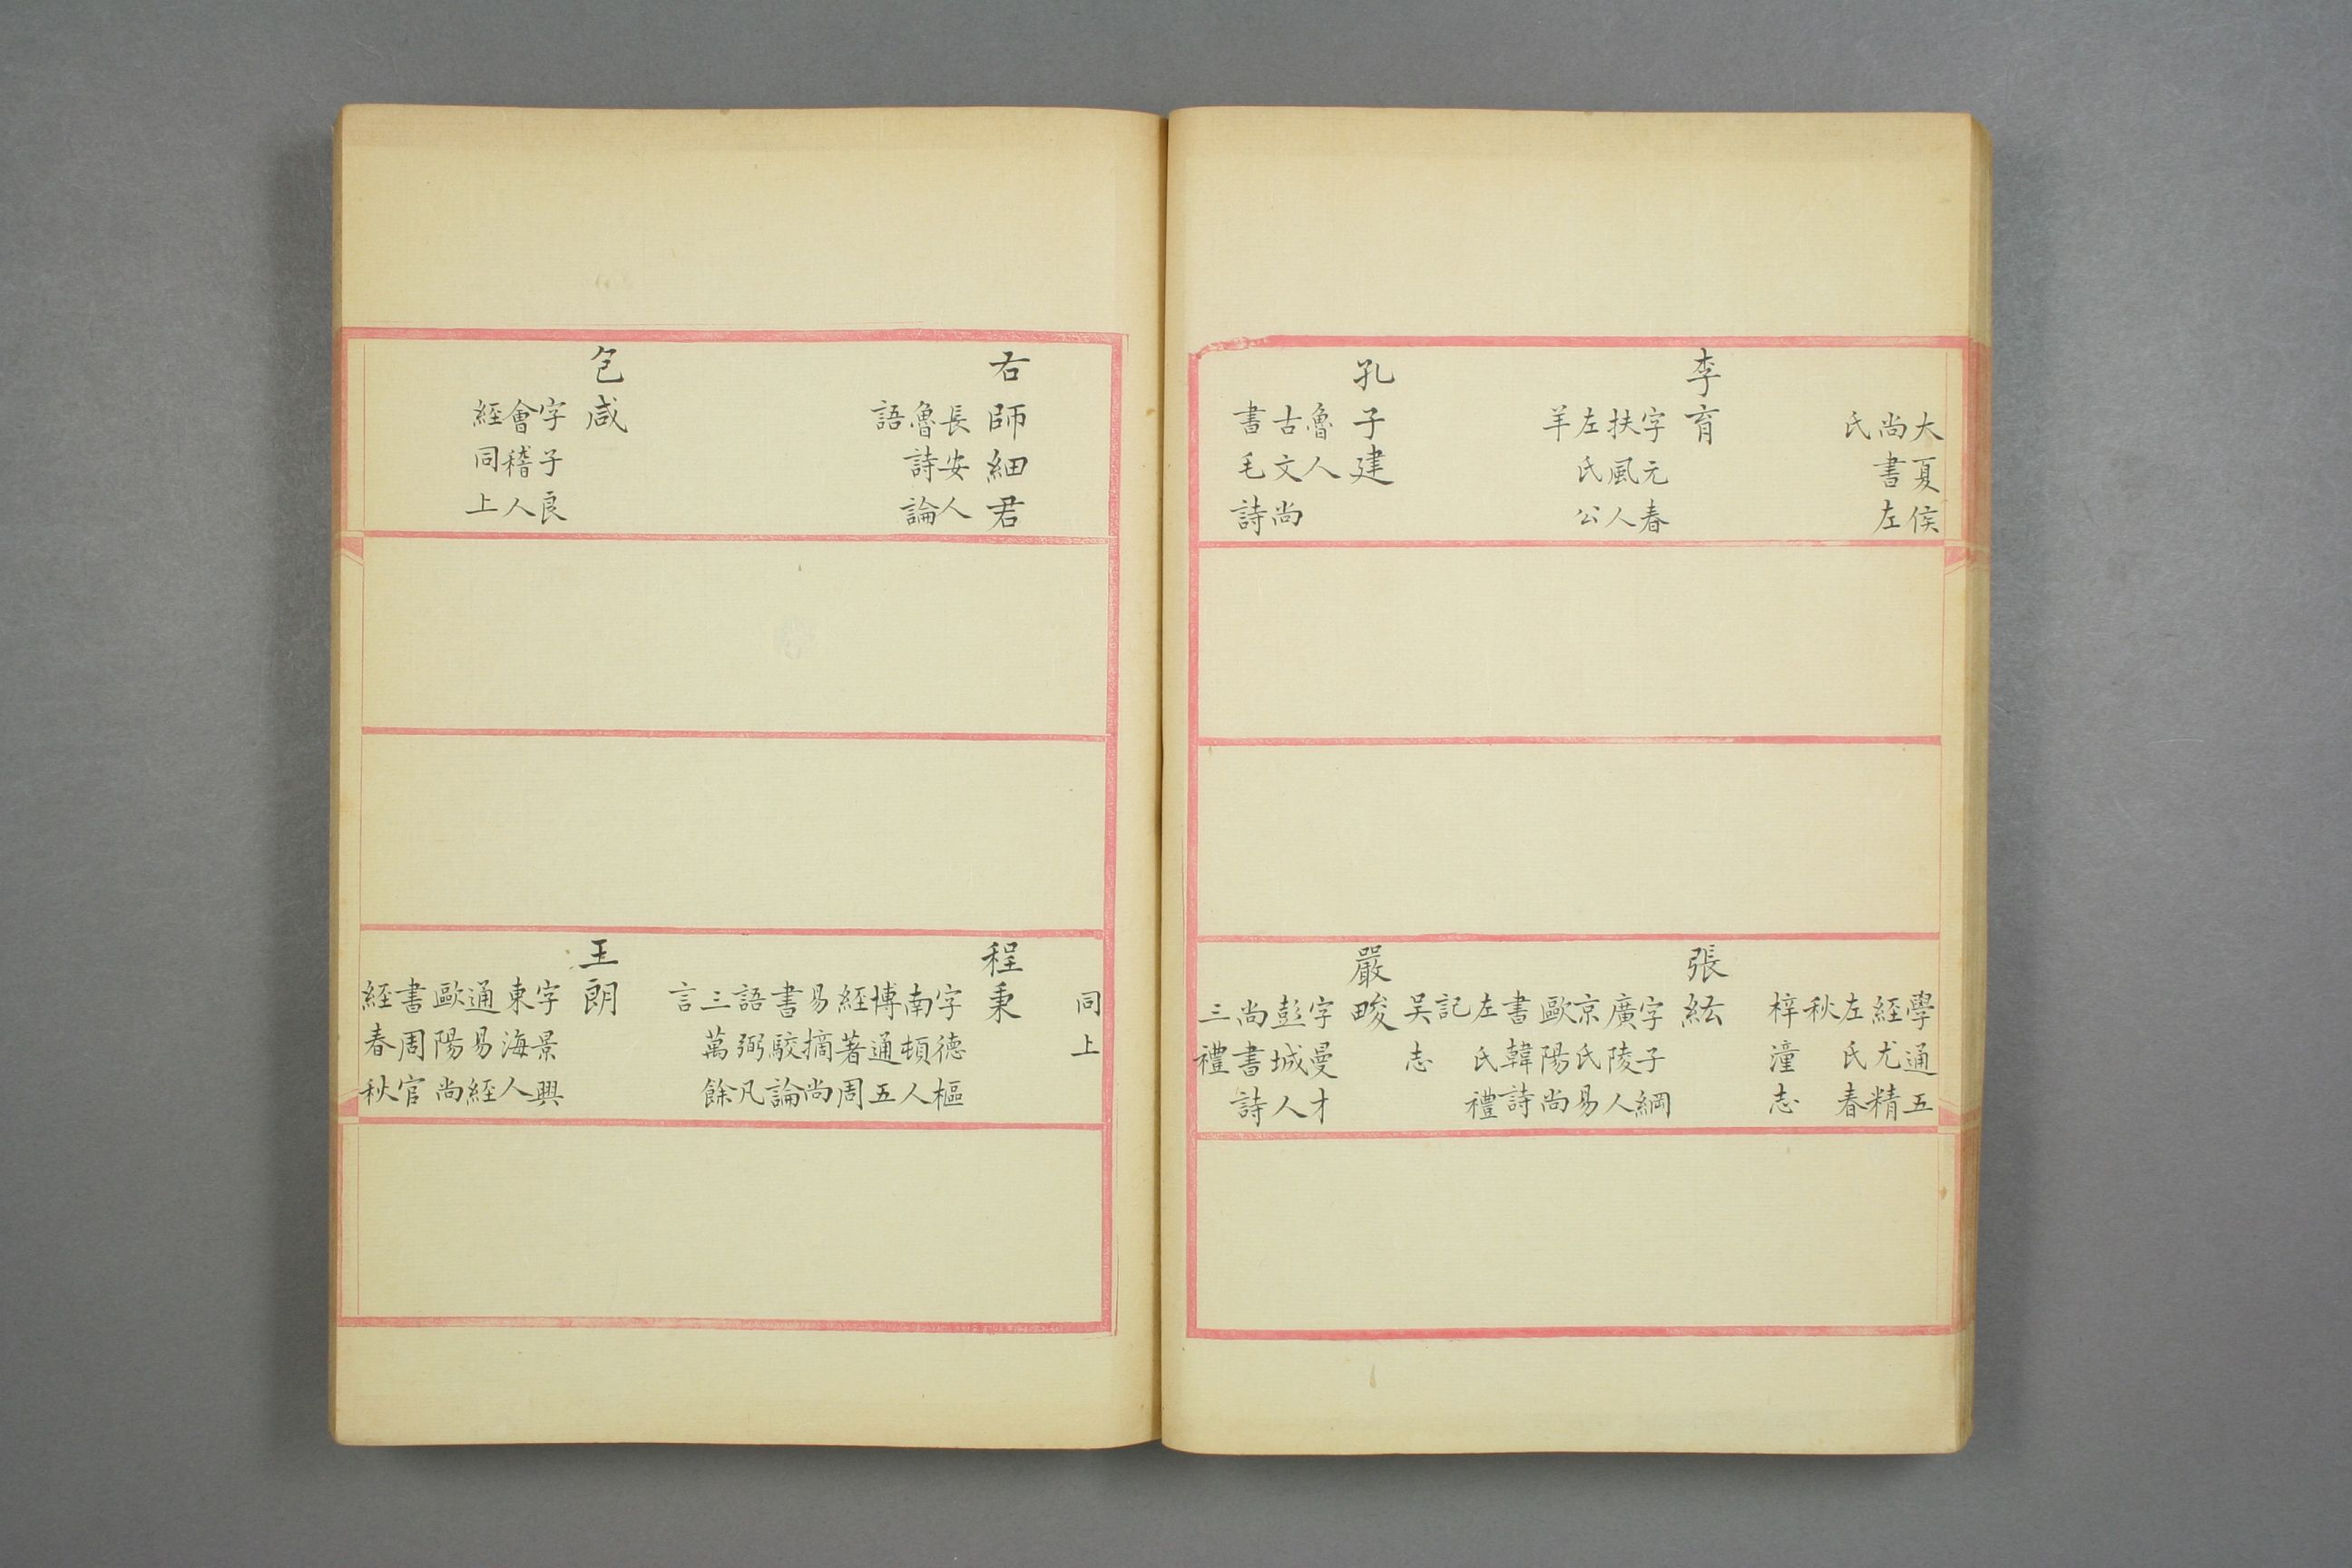 大夏侯
尚書左
氏
李育
字元春
扶風人
左氏公
羊
孔子建
魯人
古文尚
書毛詩
學通五
經尤精
左氏春
秋
梓潼志
張紘
字子綱
廣陵人
京氏易
歐陽尚
書韓詩
左氏禮
記
吳志
嚴畯
字曼才
彭城人
尚書詩
三禮
右師細君
長安人
魯詩論
語
包咸
字子良
會稽人
經同上
同上
程秉
字德樞
南頓人
博通五
經著周
易摘尚
書駮論
語弼凡
三萬餘
言
王朗
字景興
東海人
通易經
歐陽尚
書周官
經春秋